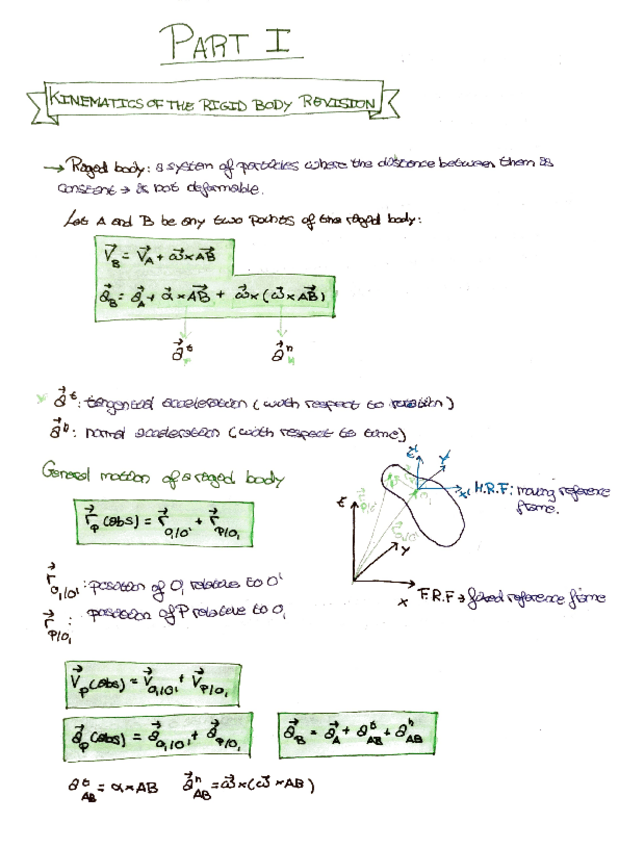 PART I
KINEMATICS OF THE RIGID BODY REVISION
→ Riged body: a system of particles where the distance between them is
constant → is not deformable.
Let A and B be any two points of the riged body:
V⃗_B = V⃗_A + ω⃗ × AB⃗
a⃗_B = a⃗_A + α⃗ × AB⃗ + ω⃗ × (ω⃗ × AB⃗)
a⃗^t a⃗^n
a⃗^t: tangential acceleration (with respect to rotation)
a⃗^n: normal acceleration (with respect to time)
General motion of a riged body
z' y'
x' M.R.F: moving reference
frame.
z
r⃗_P(abs) = r⃗_{O₁/O'} + r⃗_{P/O₁}
y
r⃗_{O₁/O'}: position of O₁ relative to O'
x F.R.F → fixed reference frame
r⃗_{P/O₁}: position of P relative to O₁
V⃗_P(abs) = V⃗_{O₁/O'} + V⃗_{P/O₁}
a⃗_P(abs) = a⃗_{O₁/O'} + a⃗_{P/O₁} a⃗_B = a⃗_A + a^t_{AB} + a^n_{AB}
a^t_{AB} = α × AB a⃗^n_{AB} = ω⃗ × (ω⃗ × AB)